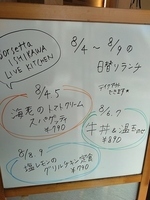 Sorsetta
ISHIKAWA
LIVE KITCHEN
8/4〜8/9の
日替りランチ
テイクアウト
できます
8/4.5
海老のトマトクリーム
スパゲッティ
¥790
8/6.7
牛丼&温そば
¥890
8/8.9
塩レモンの
グリルチキン定食
¥790